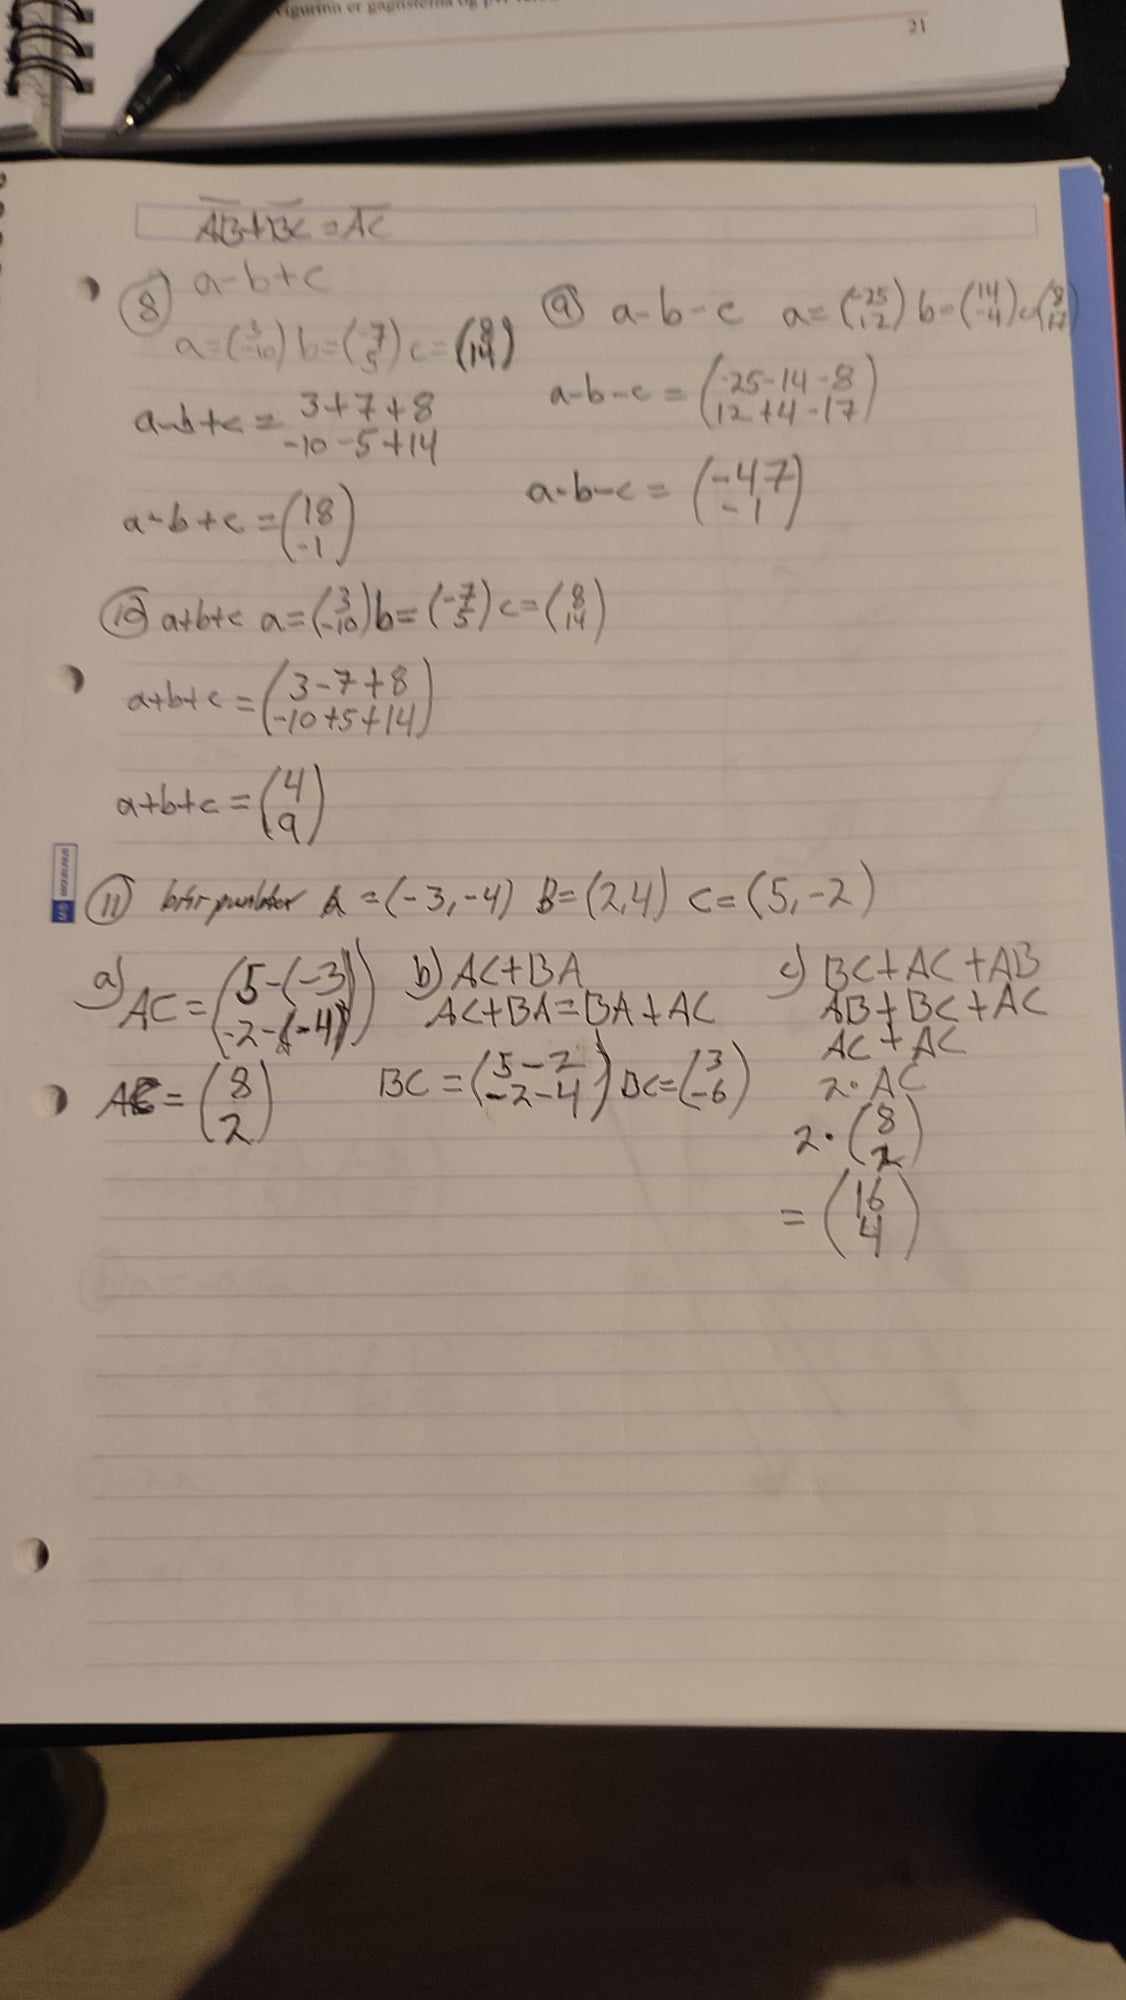 21
AB+BC=AC
8 a-b+c
a=(3 -10) b=(-7 5) c=(8 14)
a-b+c= 3+7+8
-10-5+14
a-b+c=(18 -1)
9 a-b-c a=(-25 12) b=(14 -4) c=(8 17)
a-b-c=(-25-14-8
12+4-17)
a-b-c=(-47 -1)
10 a+b+c a=(3 -10) b=(-7 5) c=(8 14)
a+b+c=(3-7+8
-10+5+14)
a+b+c=(4 9)
11 A=(-3,-4) B=(2,4) C=(5,-2)
a) AC=(5-(-3)
-2-(-4))
AC=(8 2)
b) AC+BA
AC+BA=BA+AC
BC=(5-2 -2-4) BC=(3 -6)
c) BC+AC+AB
AB+BC+AC
AC+AC
2·AC
2·(8 2)
=(16 4)